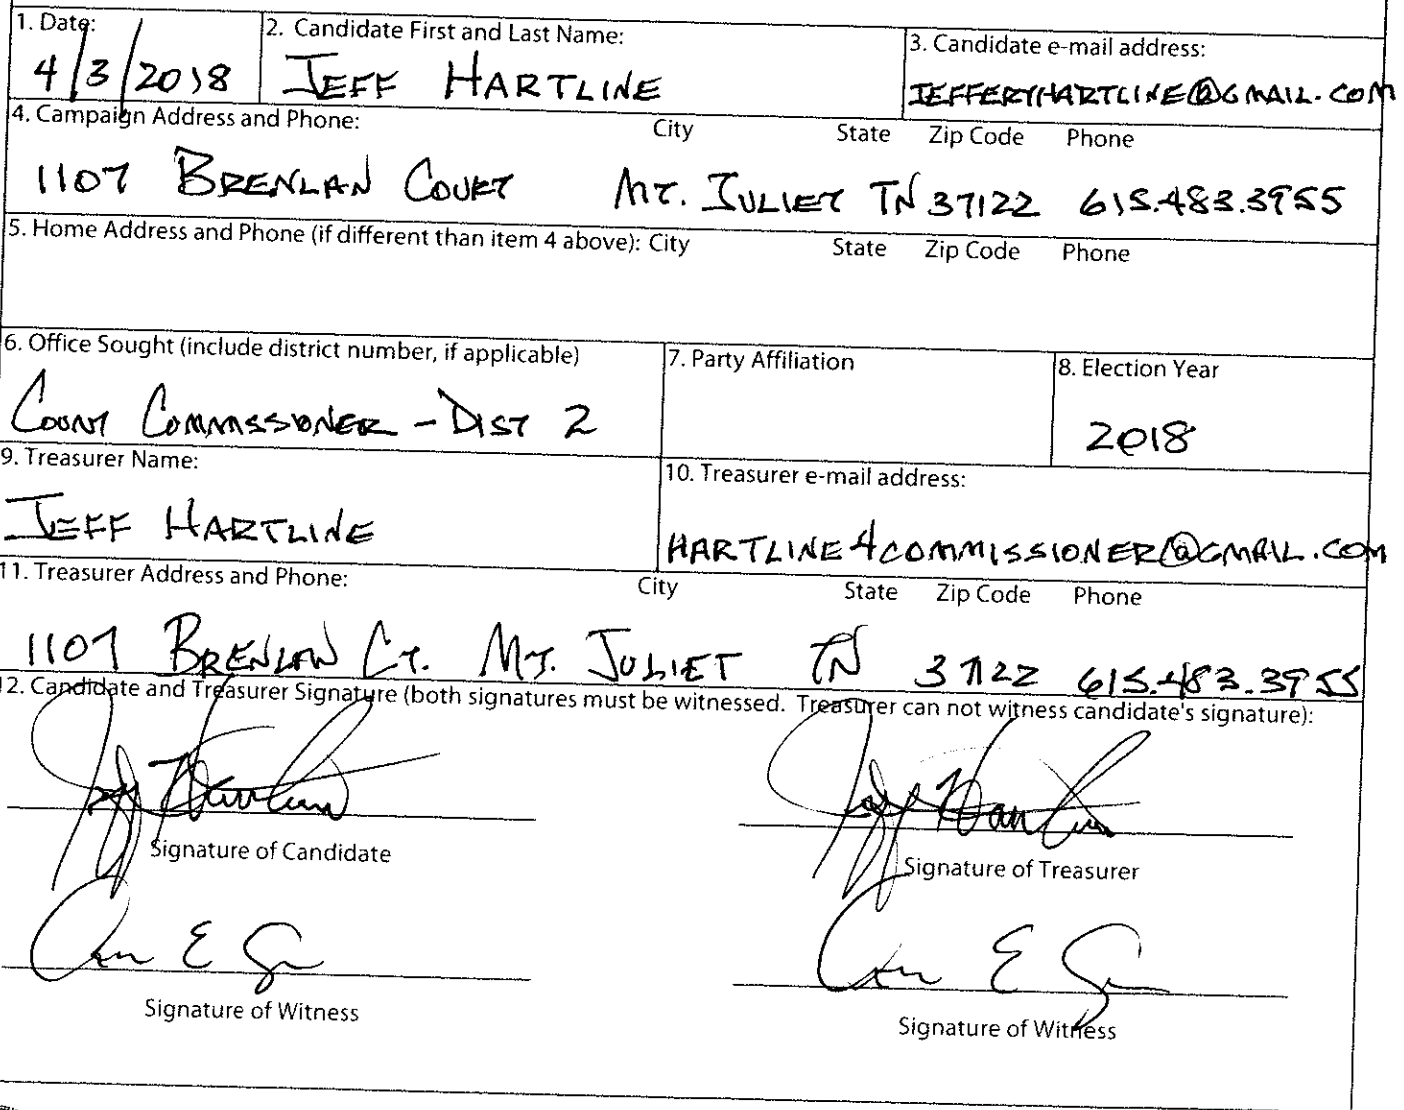 1. Date: 2. Candidate First and Last Name: 3. Candidate e-mail address:
4/3/2018 JEFF HARTLINE JEFFERYHARTLINE@GMAIL.COM
4. Campaign Address and Phone: City State Zip Code Phone
1107 BRENLAN COURT MT. JULIET TN 37122 615.483.3955
5. Home Address and Phone (if different than item 4 above): City State Zip Code Phone
6. Office Sought (include district number, if applicable) 7. Party Affiliation 8. Election Year
COUNT COMMISSIONER - DIST 2 2018
9. Treasurer Name: 10. Treasurer e-mail address:
JEFF HARTLINE HARTLINE4COMMISSIONER@GMAIL.COM
11. Treasurer Address and Phone: City State Zip Code Phone
1107 BRENLAN CT. MT. JULIET TN 37122 615.483.3955
12. Candidate and Treasurer Signature (both signatures must be witnessed. Treasurer can not witness candidate's signature):
Signature of Candidate Signature of Treasurer
Signature of Witness Signature of Witness